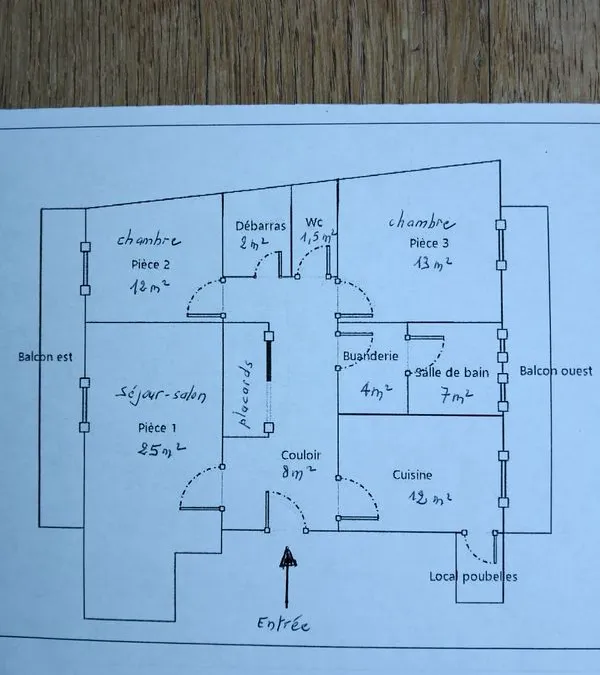 chambre
Pièce 2
12 m²
Débarras
2 m²
Wc
1,5 m²
chambre
Pièce 3
13 m²
Balcon est
Séjour-salon
Pièce 1
25 m²
placards
Buanderie
4 m²
Salle de bain
7 m²
Balcon ouest
Couloir
8 m²
Cuisine
12 m²
Local poubelles
Entrée